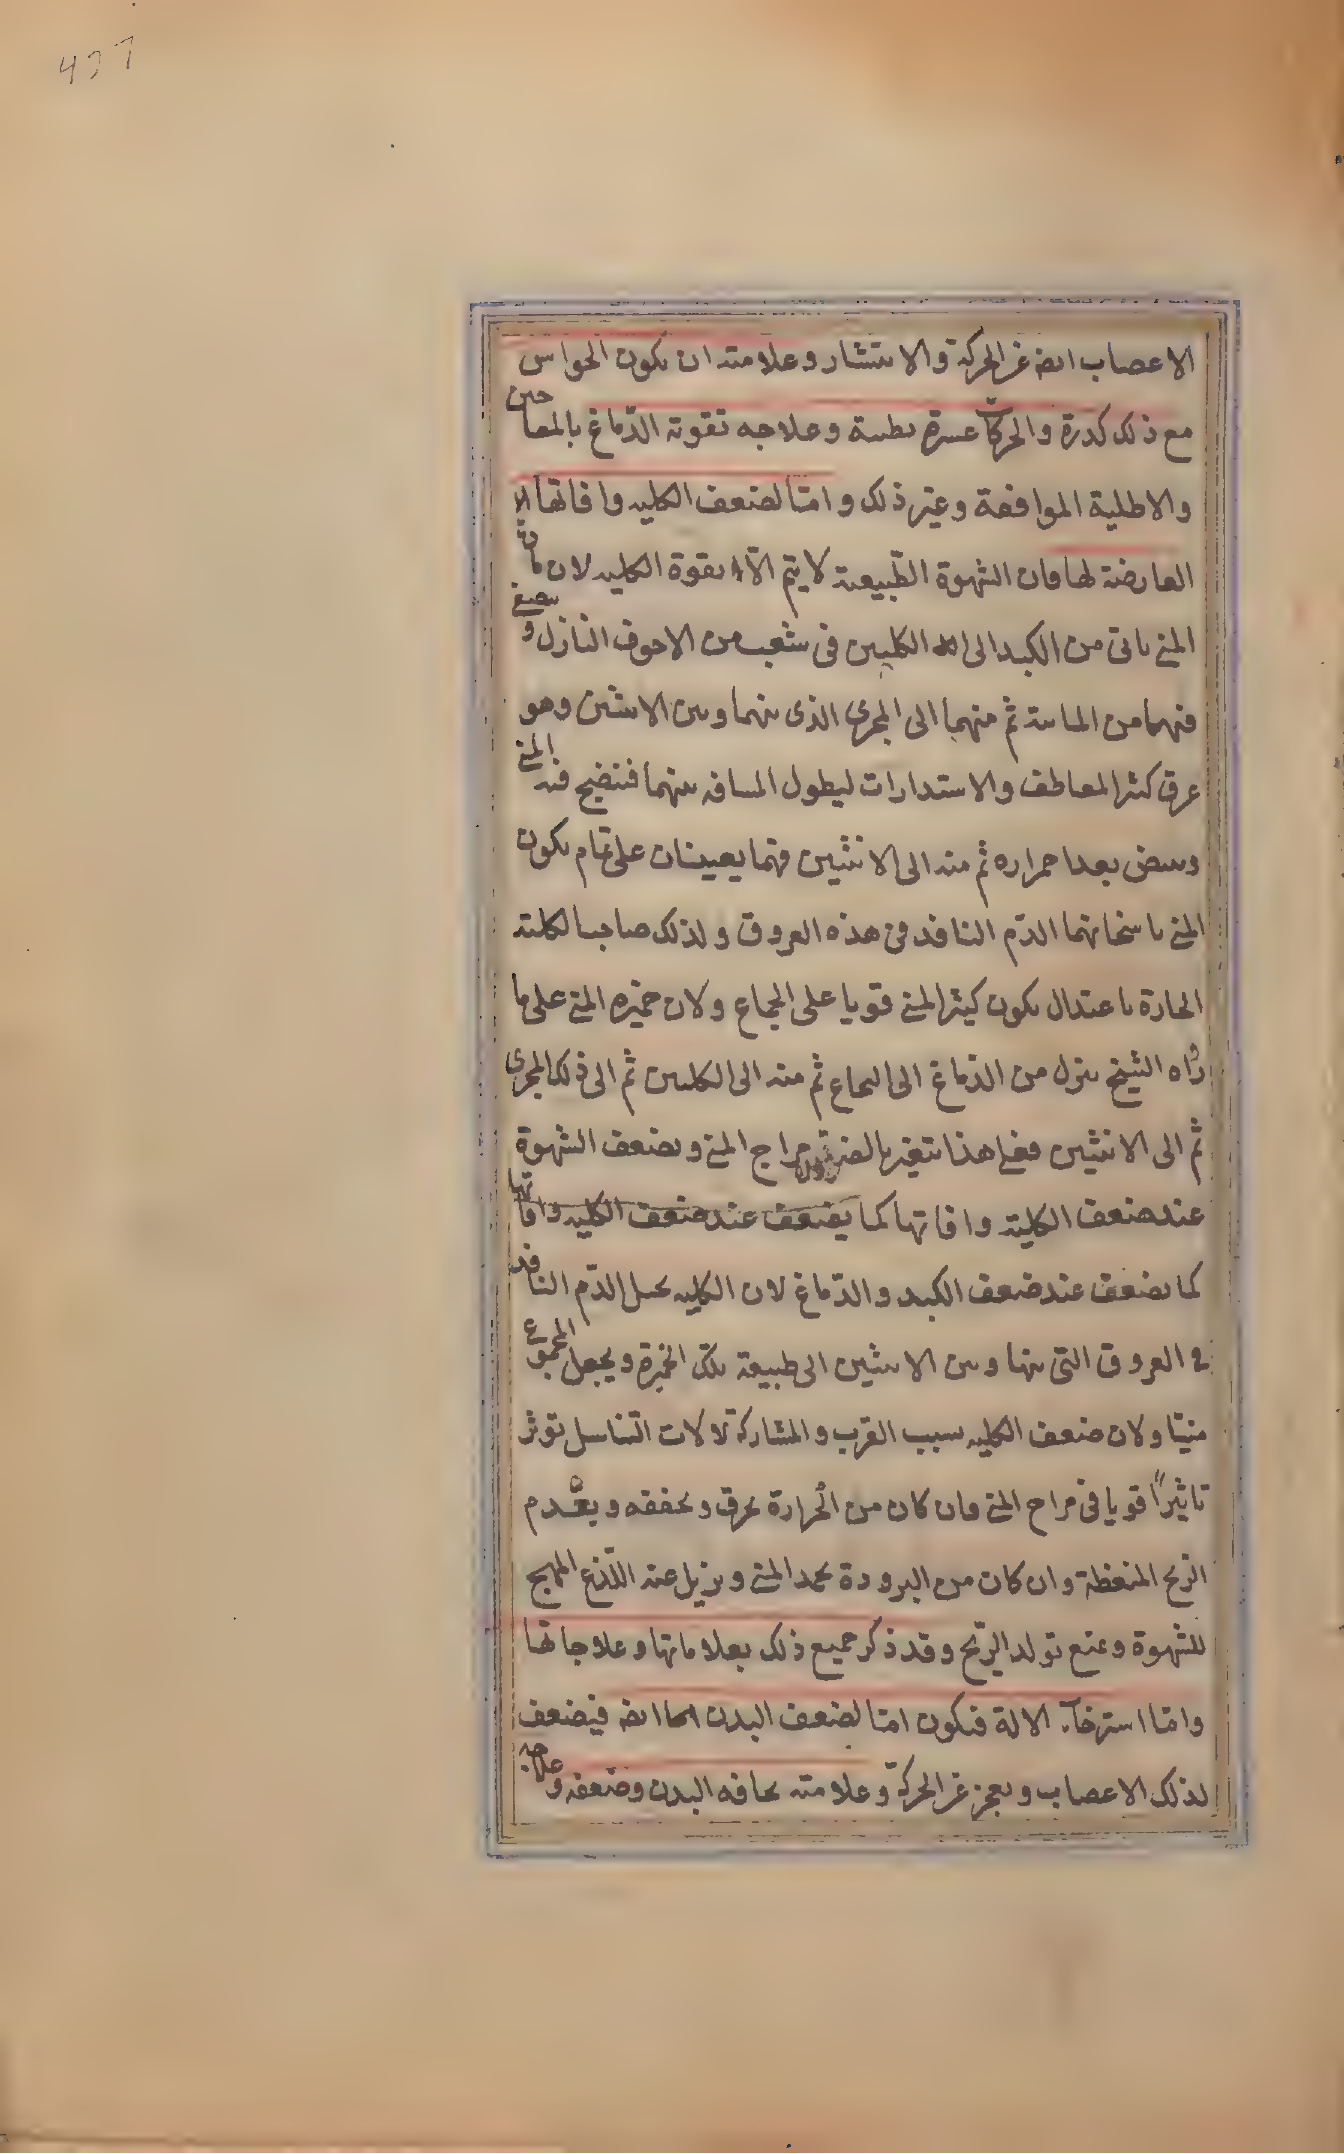 ٤٢٦
الاعصاب ايضا عن الحركة والانتشار وعلامته ان يكون الحواس
مع ذلك كدرة والحركات عسرة بطيئة وعلاجه تقوية الدّماغ بالمعاجين
والاطلية الموافقة وغير ذلك وامّا لضعف الكليه وافاتها
العارضة لها فان الشهوة الطّبيعية لا يتم الّا بقوة الكليه لان مادة
المني ياتى من الكبد الى الكليتين فى شعب من الاجوف النازل و يصفى
فيهما من المائية ثم منهما الى المجرى الذى بينهما وبين الانثيين وهو
عرق كثير المعاطف والاستدارات ليطول المسافه بينهما فينضج فيه المني
ويبيض بعد احمراره ثم منه الى الانثيين فهما يعينان على تمام يكون
المني باسخانهما الدّم النافذ فى هذه العروق ولذلك صاحب الكلية
الحارة باعتدال يكون كثير المني قويا على الجماع ولان خميرة المني على ما
راه الشيخ ينزل من الدّماغ الى النخاع ثم منه الى الكليتين ثم الى ذلك المجرى
ثم الى الانثيين فعلى هذا يتغير بالضرورة مزاج المني ويضعف الشهوة
عند ضعف الكلية وافاتها كما يضعف عند ضعف الكليه وافاتها
كما يضعف عند ضعف الكبد والدّماغ لان الكليه يحيل الدّم النافذ
فى العروق التى بينها وبين الانثيين الى طبيعة تلك الخميرة ويجعل المجموع
منيّا ولان ضعف الكليه بسبب القرب والمشاركة لالات التّناسل توثر
تاثيراً قويا فى مزاج المني فان كان من الحرارة يحرقه ويجففه ويعدم
الريح المنعظة وان كان من البرودة يجمد المني ويزيل عنه اللّذع المهيج
للشهوة ويمنع تولد الريّح وقد ذكر جميع ذلك بعلاماتها وعلاجاتها
وامّا استرخآء الالة فيكون امّا لضعف البدن ايضا فيضعف
لذلك الاعصاب ويعجز عن الحركة وعلامته نحافة البدن وضعفه وعلاجه